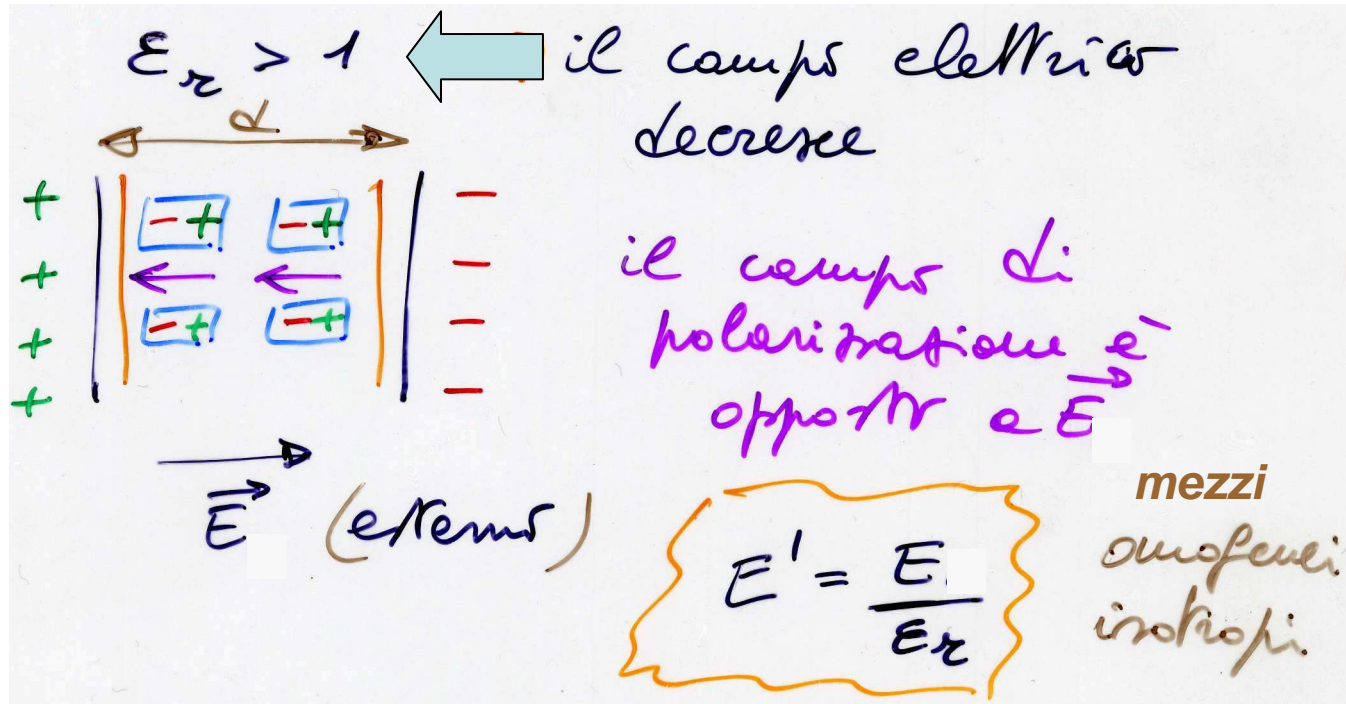 εr > 1 il campo elettrico
decresce
d
+ - + - + -
+ -
il campo di
+ - + - + -
polarizzazione è
+ -
opposto a E
E (esterno)
mezzi
E' = E / εr
omogenei
isotropi